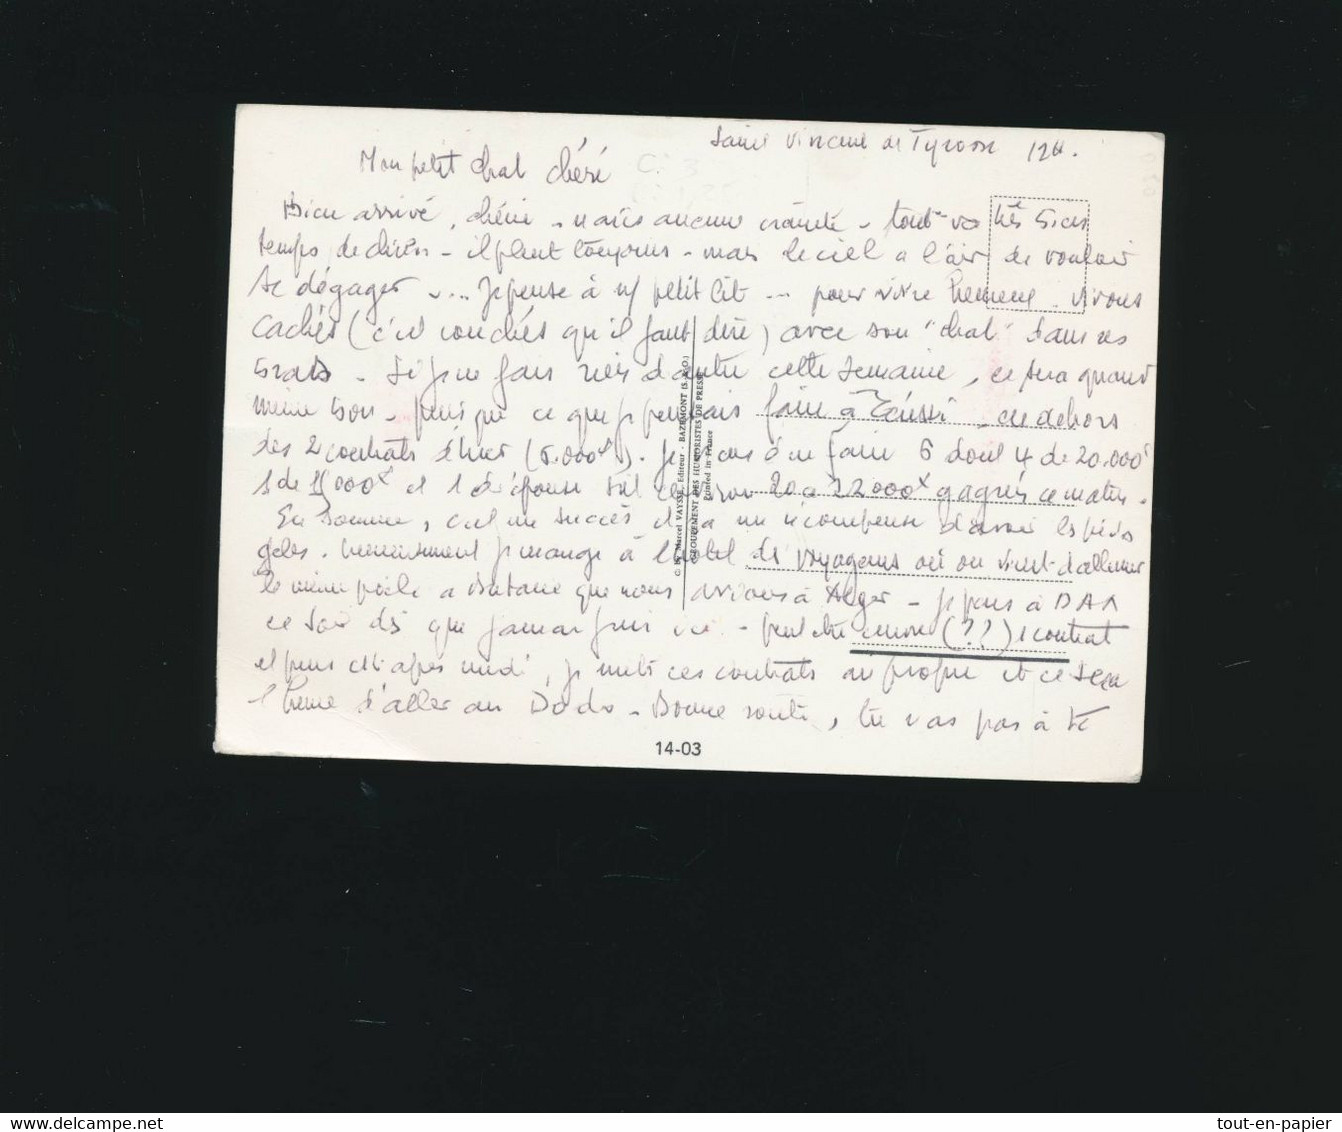 Saint Vincent de Tyrosse 12H.
Mon petit chat chéri
Bien arrivé, chérie - n'aies aucune crainte - tout va très bien
temps de chien - il pleut toujours - mais le ciel a l'air de vouloir
se dégager ... Je pense à n/ petit lit ... pour vivre heureux vivons
cachés (c'est couchés qu'il faut dire) avec son "chat" dans ses
bras - Si je ne fais rien d'autre cette semaine, ce sera quand
même bon - puisque ce que je pensais faire à en dehors
des 2 contrats (5.000F). Je viens d'en faire 6 dont 4 de 20.000F
1 de 15000F et 1 20 à 22000F gagnés ce matin.
En somme, c'est un succès et ça me récompense d'avoir les pieds
gelés. je mange à l'hotel des voyageurs où on vient d'allumer
le même poêle à butane que nous avions à Alger - Je pars à DAX
ce soir dès que j'aurai fini ici - peut être encore (??) 1 contrat
et puis cet après midi, je mets ces contrats au propre et ce sera
l'heure d'aller au Dodo - Bonne santé, tu vas pas à te
C. Marcel VAYSSE, Editeur - BAZEMONT (S.&O.)
GROUPEMENT DES HUMORISTES DE PRESSE
Printed in France
14-03
tout-en-papier